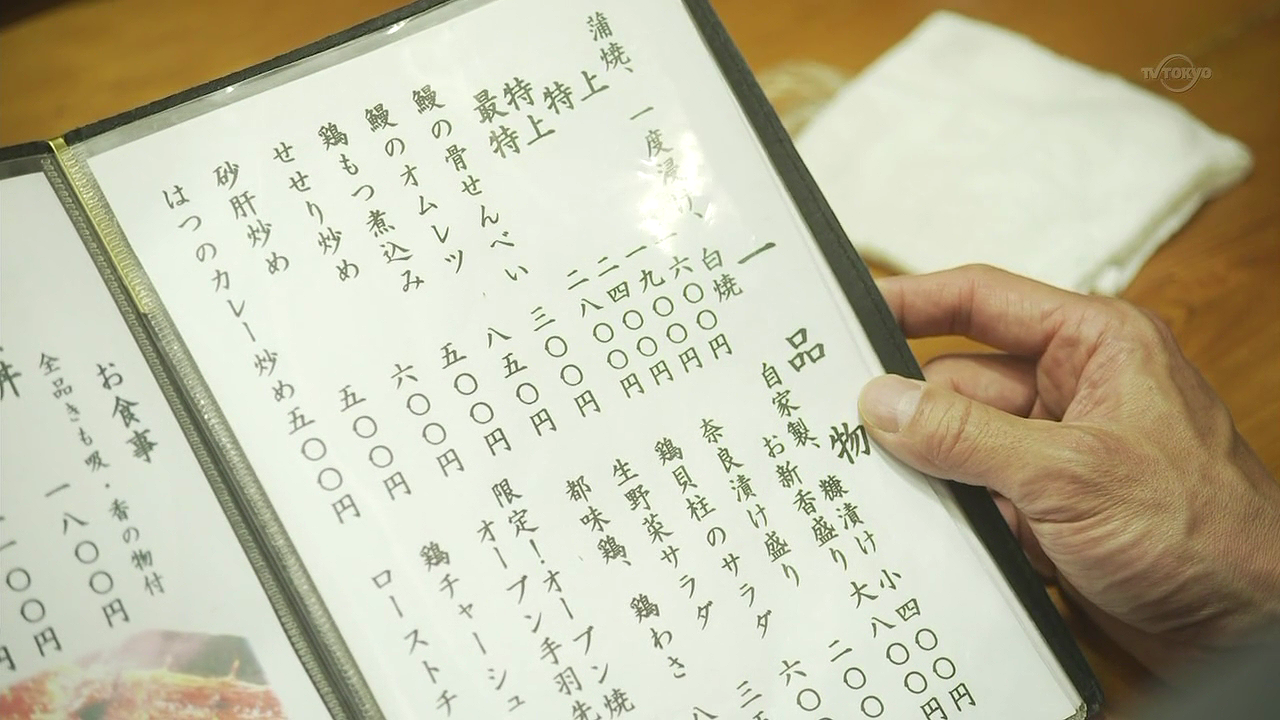 一品物
蒲焼、一度浸け、白焼
上 一六〇〇円
特 一九〇〇円
特上 二四〇〇円
最特 二八〇〇円
鰻の骨せんべい 三〇〇円
鰻のオムレツ 八五〇円
鶏もつ煮込み 五〇〇円
せせり炒め 六〇〇円
砂肝炒め 五〇〇円
はつのカレー炒め 五〇〇円
自家製、糠漬け 小 四〇〇円
お新香盛り 大 八〇〇円
奈良漬け盛り 二〇〇
鶏貝柱のサラダ 六〇
生野菜サラダ 三
都味鶏、鶏わさ 八
限定！オーブン焼
オーブン手羽先
鶏チャーシュ
ローストチ
お食事
全品きも吸・香の物付
一八〇〇円
一〇〇円
丼
TV TOKYO